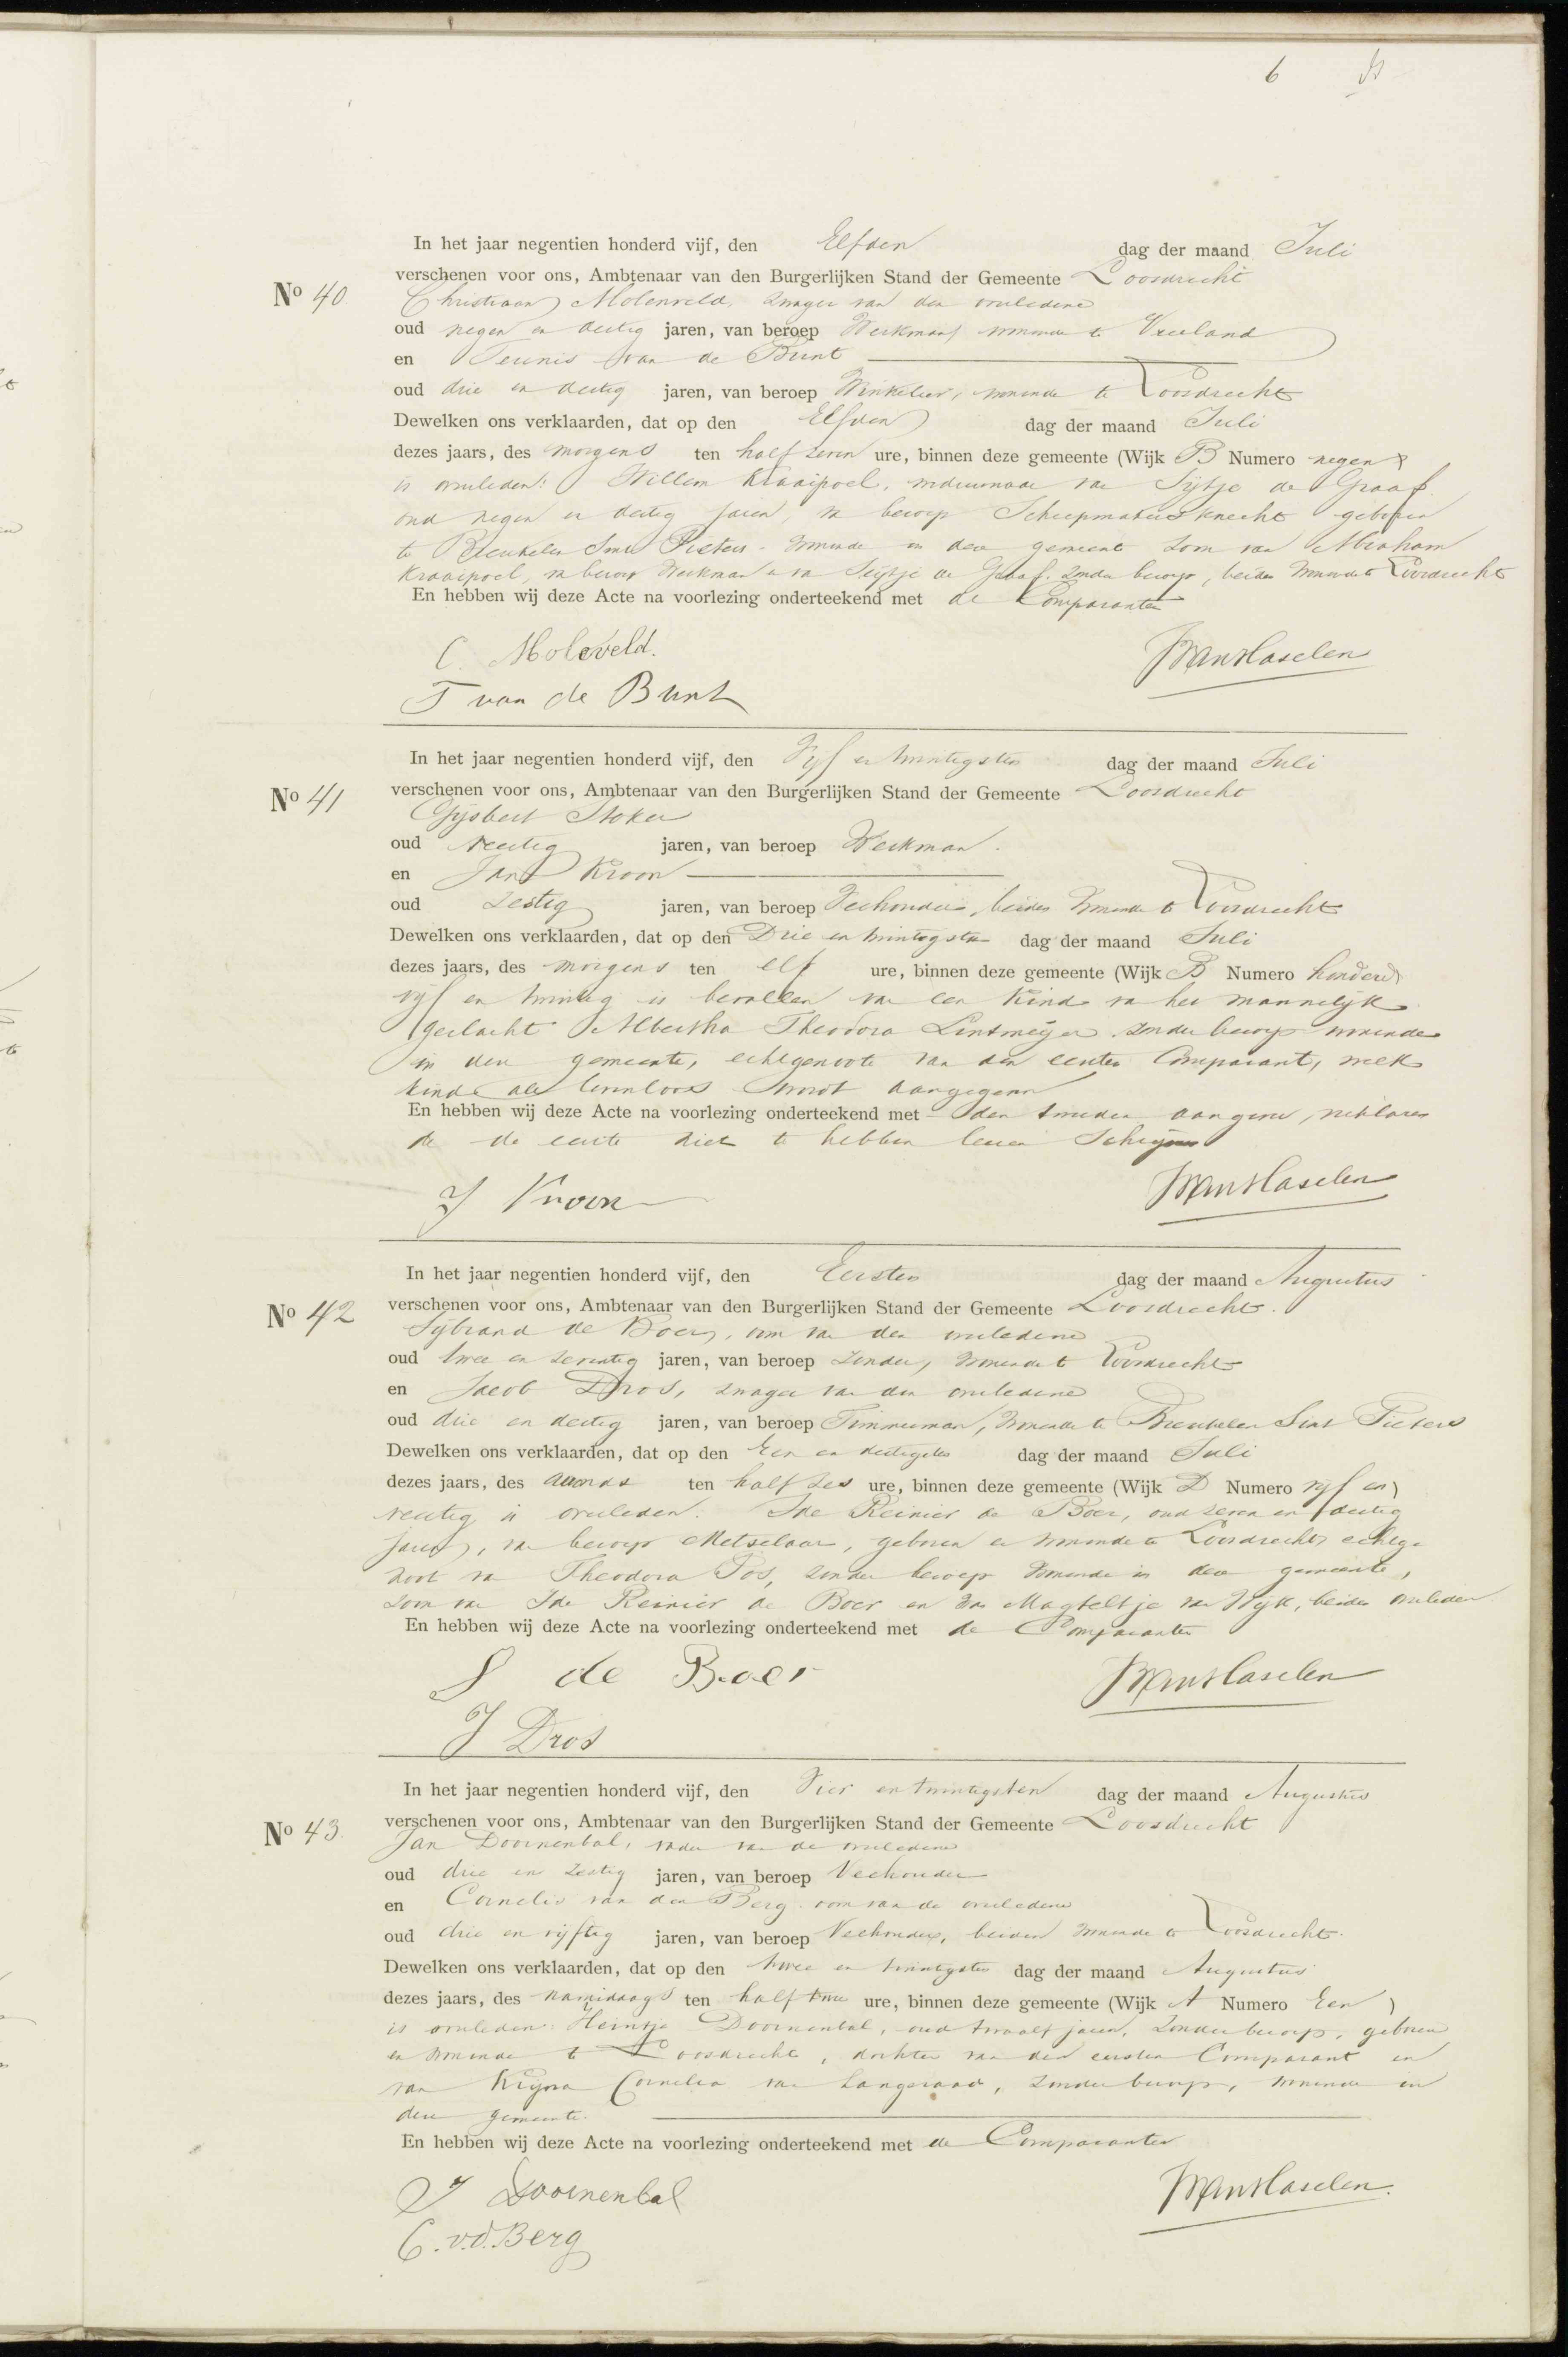 6
In het jaar negentien honderd vijf, den Elfden dag der maand Juli
No 40. verschenen voor ons, Ambtenaar van den Burgerlijken Stand der Gemeente Loosdrecht
Christiaan Molenveld, zwager van den overledene
oud negen en dertig jaren, van beroep Werkman, wonende te Vreeland
en Teunis van de Bunt
oud drie en dertig jaren, van beroep Winkelier, wonende te Loosdrecht
Dewelken ons verklaarden, dat op den Elfden dag der maand Juli
dezes jaars, des morgens ten half zeven ure, binnen deze gemeente (Wijk B Numero negen)
is overleden: Willem Kraaipoel, weduwnaar van Sijtje de Graaf
oud negen en dertig jaren, van beroep Scheepmakersknecht geboren
te Breukelen Sint Pieters, wonende in deze gemeente zoon van Abraham
Kraaipoel, van beroep Werkman en van Seijtje de Graaf, zonder beroep, beiden wonende te Loosdrecht
En hebben wij deze Acte na voorlezing onderteekend met de Comparanten
C. Moleveld. JvanHaselen
T van de Bunt
In het jaar negentien honderd vijf, den Vijf en twintigsten dag der maand Juli
No 41 verschenen voor ons, Ambtenaar van den Burgerlijken Stand der Gemeente Loosdrecht
Gijsbert Stoker
oud veertig jaren, van beroep Werkman.
en Jan Kroon
oud zestig jaren, van beroep Veehouder, beiden wonende te Loosdrecht
Dewelken ons verklaarden, dat op den Drie en twintigsten dag der maand Juli
dezes jaars, des morgens ten elf ure, binnen deze gemeente (Wijk B Numero honderd
vijf en twintig is bevallen van een kind van het mannelijk
geslacht Albertha Theodora Lintmeijer zonder beroep wonende
in deze gemeente, echtgenoote van den eersten Comparant, welk
kind als levenloos wordt aangegeven
En hebben wij deze Acte na voorlezing onderteekend met den tweeden aangever, verklaren
de de eerste niet te hebben leeren Schrijven
J Kroon JvanHaselen
In het jaar negentien honderd vijf, den Eersten dag der maand Augustus
No 42 verschenen voor ons, Ambtenaar van den Burgerlijken Stand der Gemeente Loosdrecht.
Sijbrand de Boer, oom van den overledene
oud twee en zeventig jaren, van beroep zonder, wonende te Loosdrecht
en Jacob Dros, zwager van den overledene
oud drie en dertig jaren, van beroep Timmerman, wonende te Breukelen Sint Pieters
Dewelken ons verklaarden, dat op den Een en dertigsten dag der maand Juli
dezes jaars, des avonds ten half zes ure, binnen deze gemeente (Wijk D Numero vijf en)
veertig is overleden: Ide Reinier de Boer, oud zeven en dertig
jaren, van beroep Metselaar, geboren en wonende te Loosdrecht, echtge-
noot van Theodora Pos, zonder beroep wonende in deze gemeente,
zoon van Ide Reinier de Boer en van Magteltje van Wijk, beiden overleden
En hebben wij deze Acte na voorlezing onderteekend met de Comparanten
S de Boer JvanHaselen
J Dros
In het jaar negentien honderd vijf, den Vier en twintigsten dag der maand Augustus
No 43. verschenen voor ons, Ambtenaar van den Burgerlijken Stand der Gemeente Loosdrecht
Jan Doornenbal, vader van de overledene
oud drie en zestig jaren, van beroep Veehouder
en Cornelis van den Berg oom van de overledene
oud drie en vijftig jaren, van beroep Veehouder, beiden wonende te Loosdrecht.
Dewelken ons verklaarden, dat op den twee en twintigsten dag der maand Augustus
dezes jaars, des namiddags ten half twee ure, binnen deze gemeente (Wijk A Numero Een)
is overleden: Heintje Doornenbal, oud twaalf jaren, zonder beroep, geboren
en wonende te Loosdrecht, dochter van den eersten Comparant en
van Krijna Cornelia van Langeraad, zonder beroep, wonende in
deze gemeente.
En hebben wij deze Acte na voorlezing onderteekend met de Comparanten
J Doornenbal JvanHaselen.
C. v.d. Berg